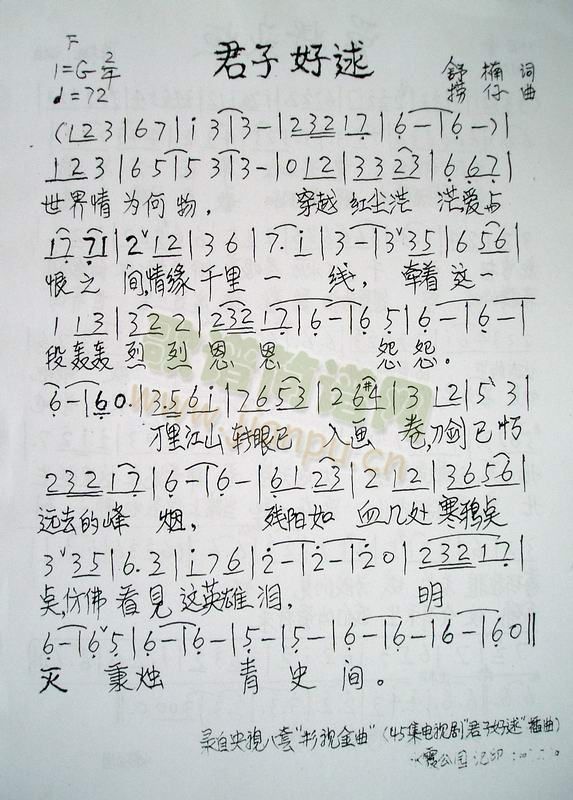 君子好逑
F
1=G 2/4
♩=72
舒楠 词
捞仔 曲
(1 2 3|6 7|i 3|3-|2 3 2 1 7|6-|6-)|
1 2 3|6 5|5 3|3-|0 1 2|3 3 2 3|6 6 7|
世界情为何物， 穿越红尘浩 茫爱与
1 7 7 1|2ˇ1 2|3 6|7. i|3-|3ˇ3 5|6 5 6|
恨之间,情缘千里一线，牵着这一
1 1 3|3 2 2|2 3 2 1 7|6-|6 5|6-|6-|
段轰轰烈烈恩恩 怨怨。
6-|6 0.|3 5 6 i|7 6 5 3|2 6 #4|3 1 2|5ˇ3|
万里江山转眼已入画卷,刀剑已朽
2 3 2 1 7|6-|6-|6 1 2 3|2 1 2|3 6 5 6|
远去的峰烟， 残阳如血几处寒鸦点
3ˇ3 5|6. 3|i 7 6|2-|2-|2 0|2 3 2 1 7|
点,仿佛看見这英雄泪， 明
6-|6ˇ5|6-|6-|5-|5-|6-|6-|6-|6 0‖
灭 秉烛 青史间。
录自央視八套"影視金曲"(45集电视剧"君子好逑"插曲)
公园记印
歌谱简谱网
www.jianpu.cn